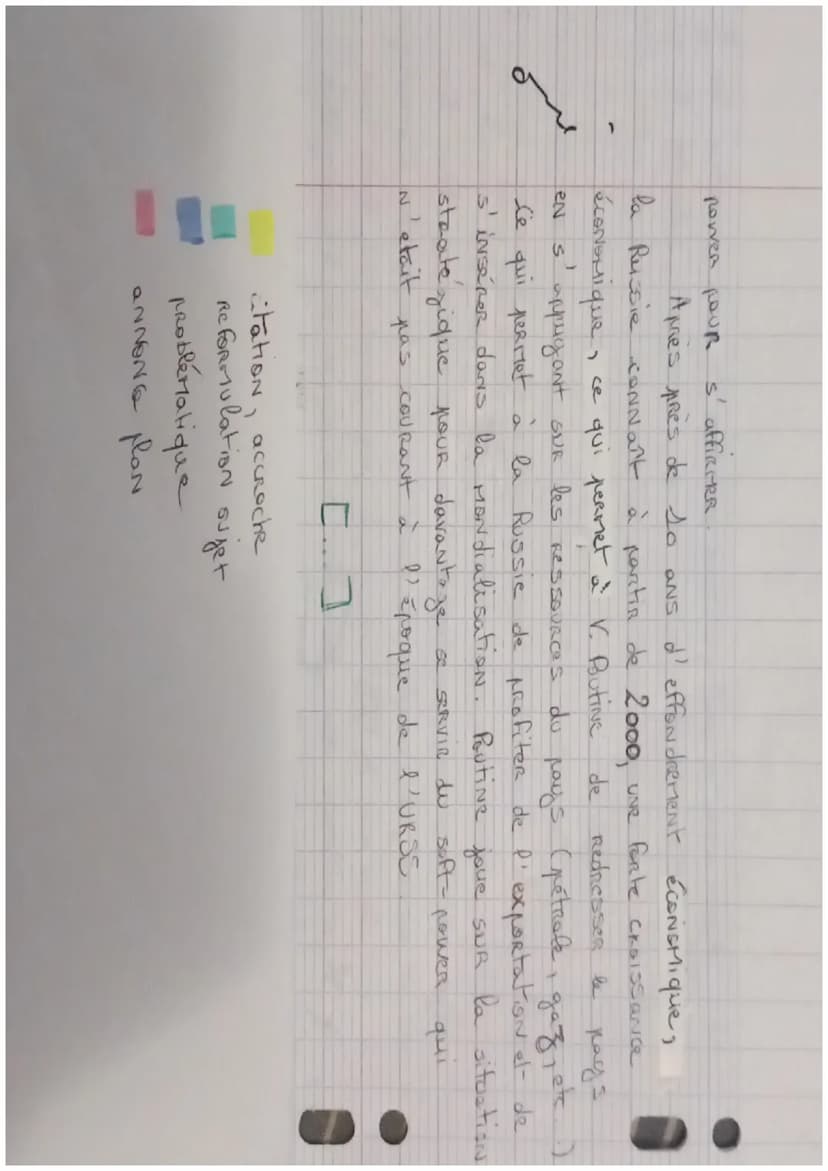 power pour s'affirmer.
Après près de 10 ans d'effondrement économique,
la Russie connaît à partir de 2000, une forte croissance
économique, ce qui permet à V. Poutine de redresser le pays
en s'appuyant sur les ressources du pays (pétrole, gaz, etc...)
Ce qui permet à la Russie de profiter de l'exportation et de
s'insérer dans la mondialisation. Poutine joue sur la situation
straatégique pour davantage se servir du soft-power qui
n'était pas courant à l'époque de l'URSS.
[...]
citation, accroche
reformulation sujet
problématique
annonce plan